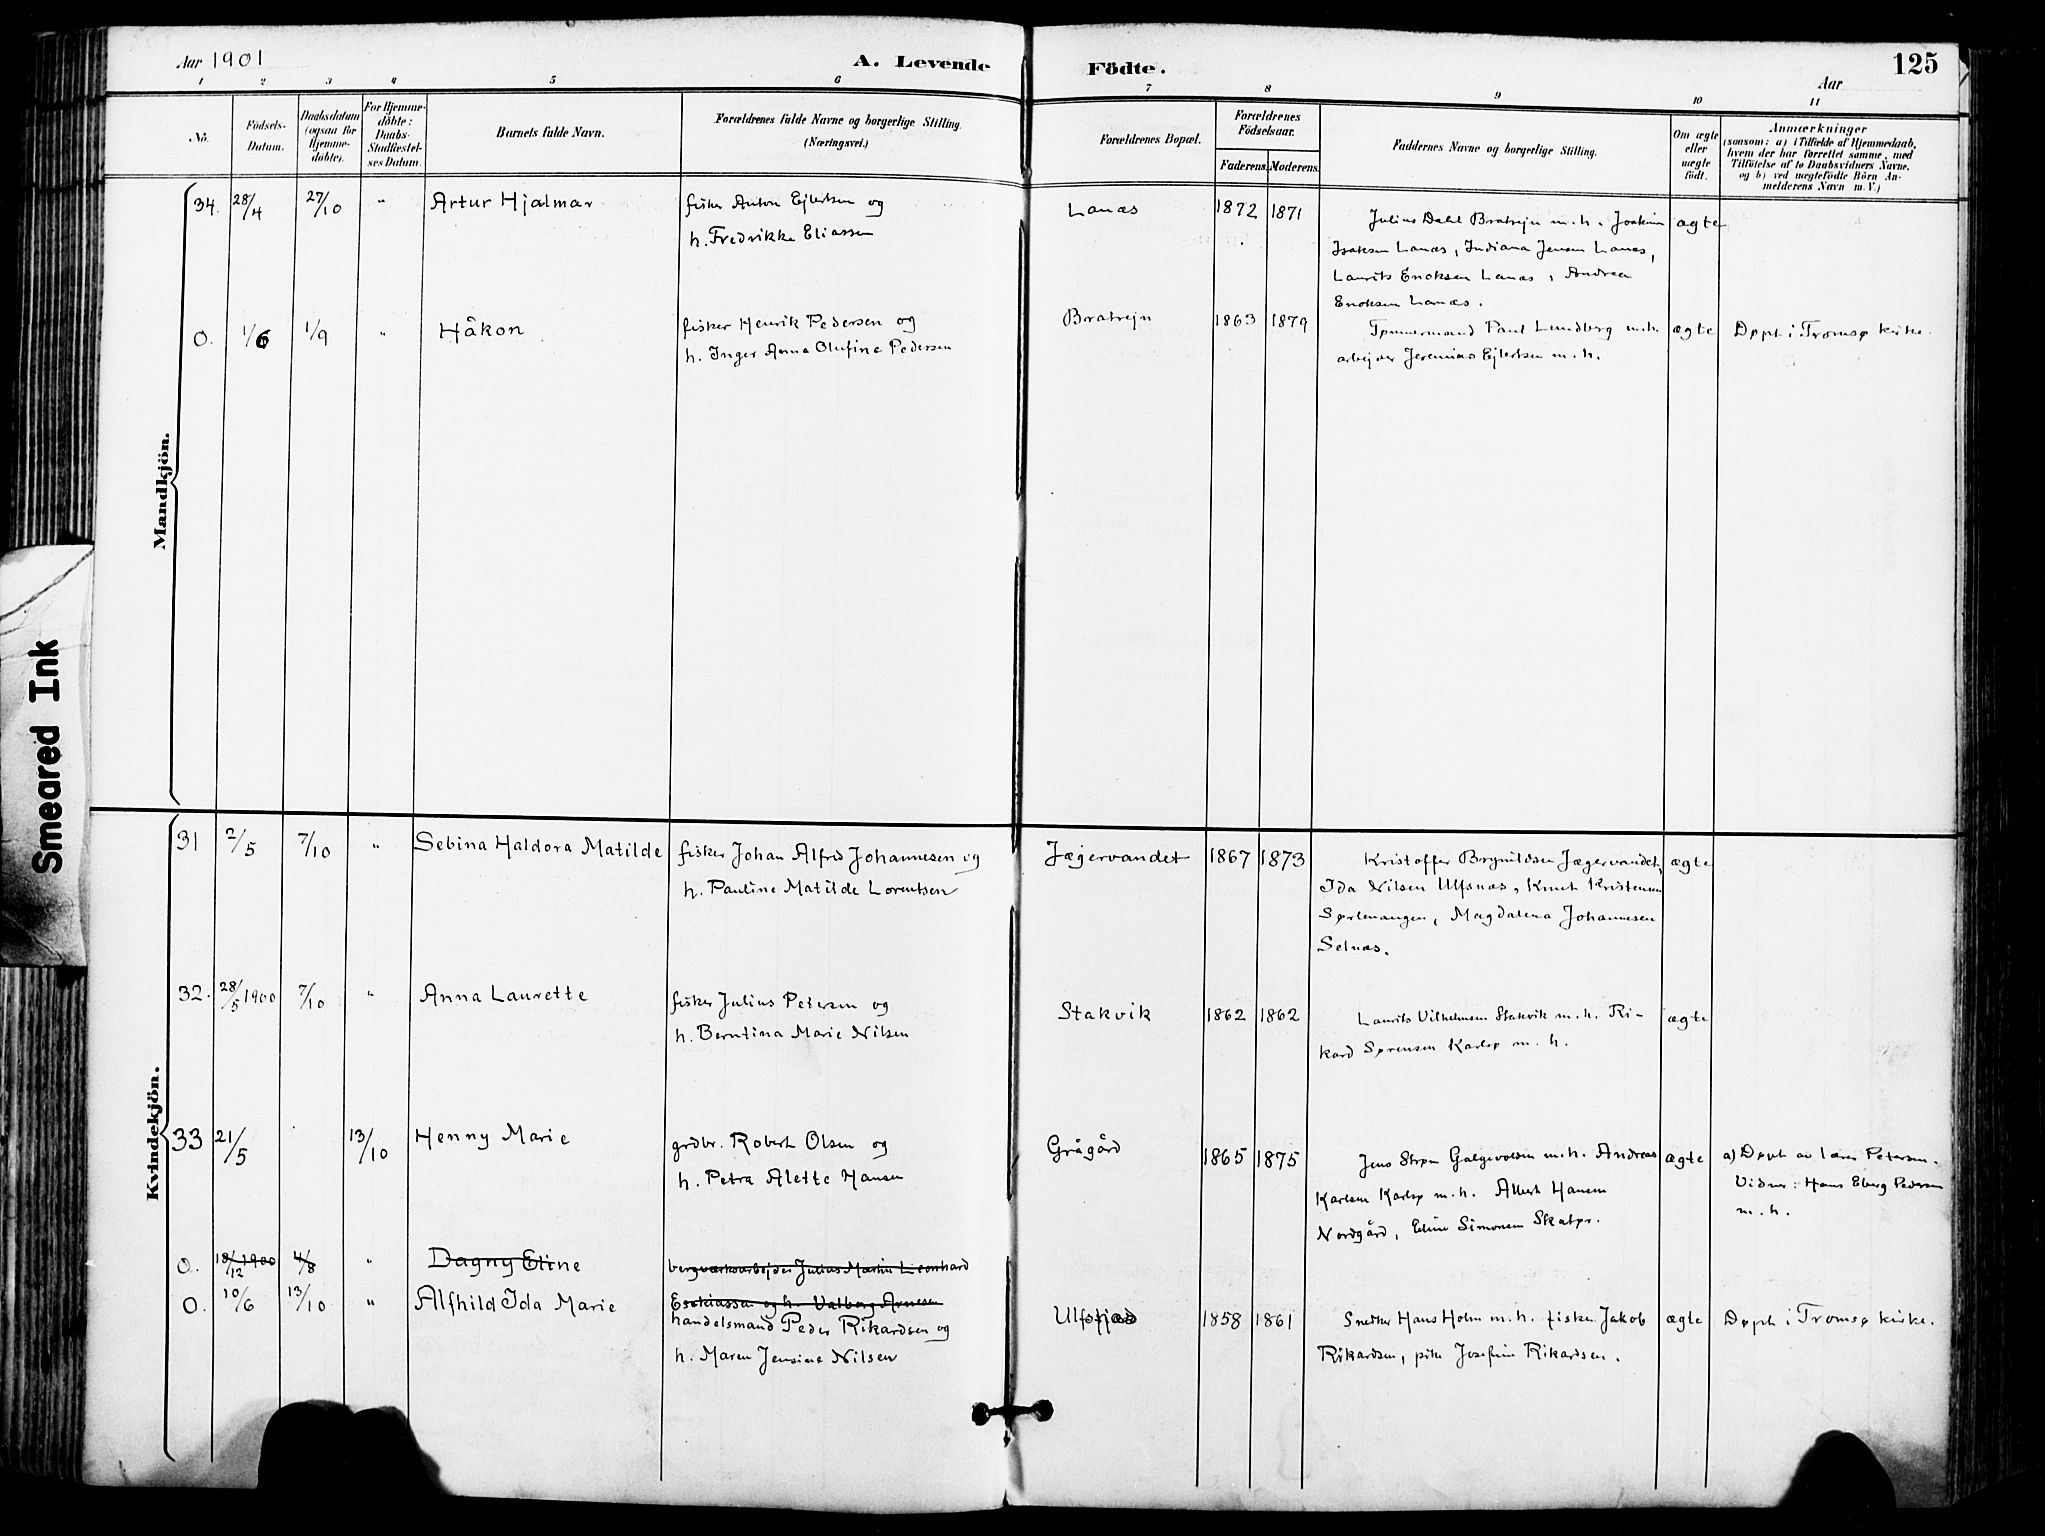 Aar 1901
A. Levende Födte.
Aar
125
1 2 3 4 5 6 7 8 9 10 11
No.
Födsels-Datum.
Daabsdatum (ogsaa for Hjemme-döbte).
For Hjemme-döbte: Daabs-Stadfæstel-ses Datum.
Barnets fulde Navn.
Forældrenes fulde Navne og borgerlige Stilling.
(Næringsvei.)
Forældrenes Bopæl.
Forældrenes Födselsaar.
Faderens. Moderens.
Faddernes Navne og borgerlige Stilling.
Om ægte eller uægte födt.
Anmærkninger
(saasom: a) i Tilfælde af Hjemmedaab,
hvem der har forrettet samme, med
Tilföielse af to Daabsvidners Navne.
og b) ved uægtefödte Börn An-
melderens Navn m. V.)
Mandkjön.
34. 28/4 27/10 " Artur Hjalmar
fisker Anton Ejlertsen og
h. Fredrikke Eliassen
Lanæs 1872 1871
Julius Dahl Bratrejn m. h. Joakim
Isaksen Lanæs, Indiana Jensen Lanæs,
Laurits Enoksen Lanæs, Andrea
Enoksen Lanæs.
ægte
0. 1/6 1/9 " Håkon
fisker Henrik Pedersen og
h. Inger Anna Olufine Pedersen
Bratrejn 1863 1879
Tømmermand Paul Lundberg m. h.
arbejder Jeremias Ejlertsen m. h.
ægte
Døpt i Tromsø kirke.
Smeared Ink
Kvindekjön.
31 2/5 7/10 " Sebina Haldora Matilde
fisker Johan Alfred Johannesen og
h. Pauline Matilde Lorentsen
Jægervandet 1867 1873
Kristoffer Brynildsen Jægervandet,
Ida Nilsen Ulfsnæs, Knut Kristensen
Sørlenangen, Magdalena Johannesen
Selnæs.
ægte
32. 28/5 1900 7/10 " Anna Laurette
fisker Julius Petersen og
h. Berntina Marie Nilsen
Stakvik 1862 1862
Laurits Vilhelmsen Stakvik m. h. Ri-
kard Sørensen Karlsø m. h.
ægte
33 21/5 13/10 Henny Marie
grdbr. Robert Olsen og
h. Petra Alette Hansen
Grågård 1865 1875
Jens Strøm Galgevolden m. h. Andreas
Karlsen Karlsø m. h. Albert Hansen
Nordgård, Edine Simonsen Skatør.
ægte
a) Døpt av lærer Petersen.
Vidner: Hans Eberg Pedersen
m. h.
0. 18/12 1900 4/8 " Dagny Eline
bergværksarbejder Julius Martin Leonhard
Esekiassen og h. Valborg Arnesen
0. 10/6 13/10 " Alfhild Ida Marie
handelsmand Peder Rikardsen og
h. Maren Jensine Nilsen
1858 1861
Snedker Hans Holm m. h. fisker Jakob
Rikardsen, pike Josefine Rikardsen.
ægte
Døpt i Tromsø kirke.